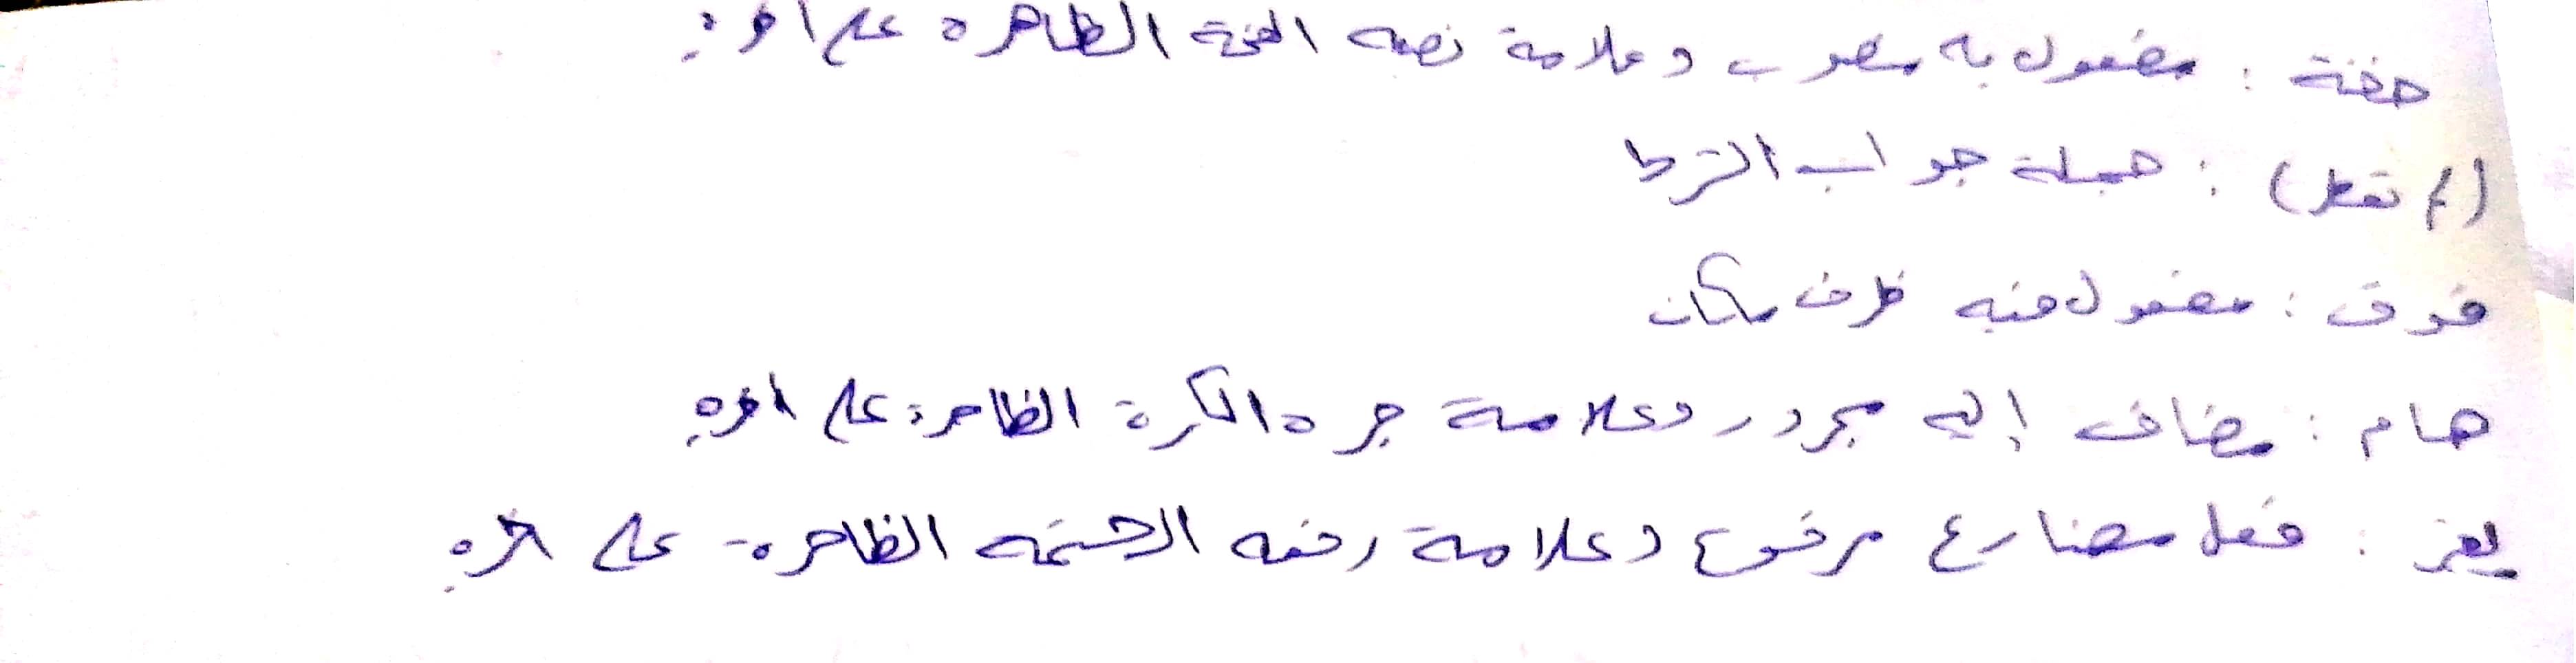 حفنة : مفعول به منصوب وعلامة نصبه الفتحة الظاهرة على آخره
(لم تقطر) : جملة جواب الشرط
فوق : مفعول فيه ظرف مكان
هام : مضاف إليه مجرور وعلامة جره الكسرة الظاهرة على آخره
: فعل مضارع مرفوع وعلامة رفعه الضمة الظاهرة على آخره